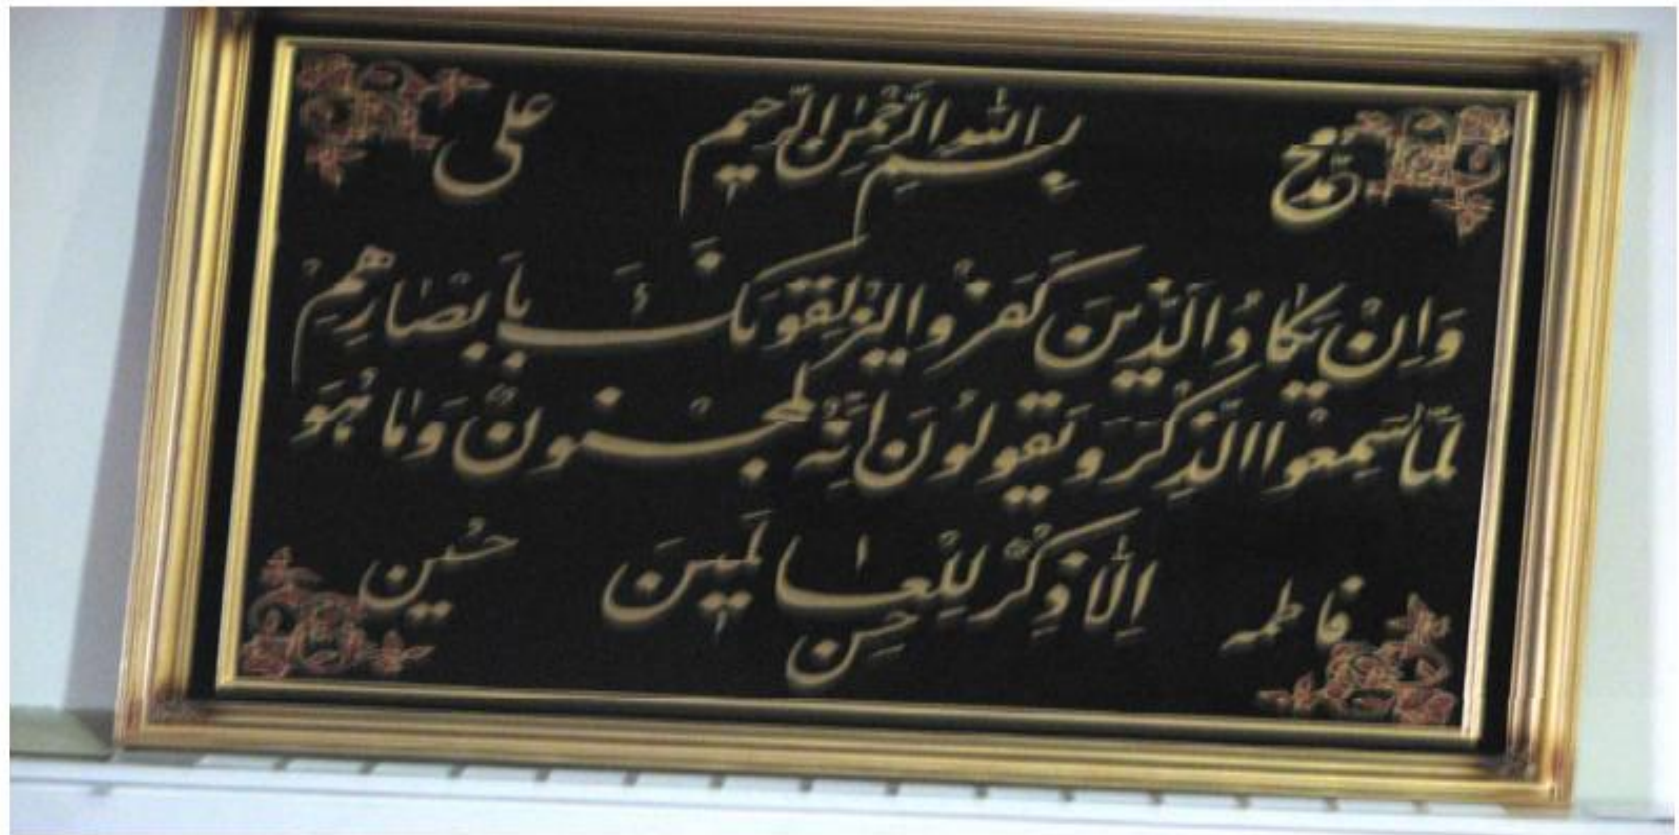 محمد بِسْمِ اللهِ الرَّحْمٰنِ الرَّحیمِ علی
وَاِنْ یَکٰادُ الَّذینَ کَفَرُوا لَیُزْلِقُونَکَ بِاَبْصٰارِهِمْ
لَمّٰا سَمِعُوا الذِّکْرَ وَیَقُولُونَ اِنَّهُ لَمَجْنُونٌ وَمٰا هُوَ
اِلّٰا ذِکْرٌ لِلْعٰالَمینَ
فاطمه حسن حُسین